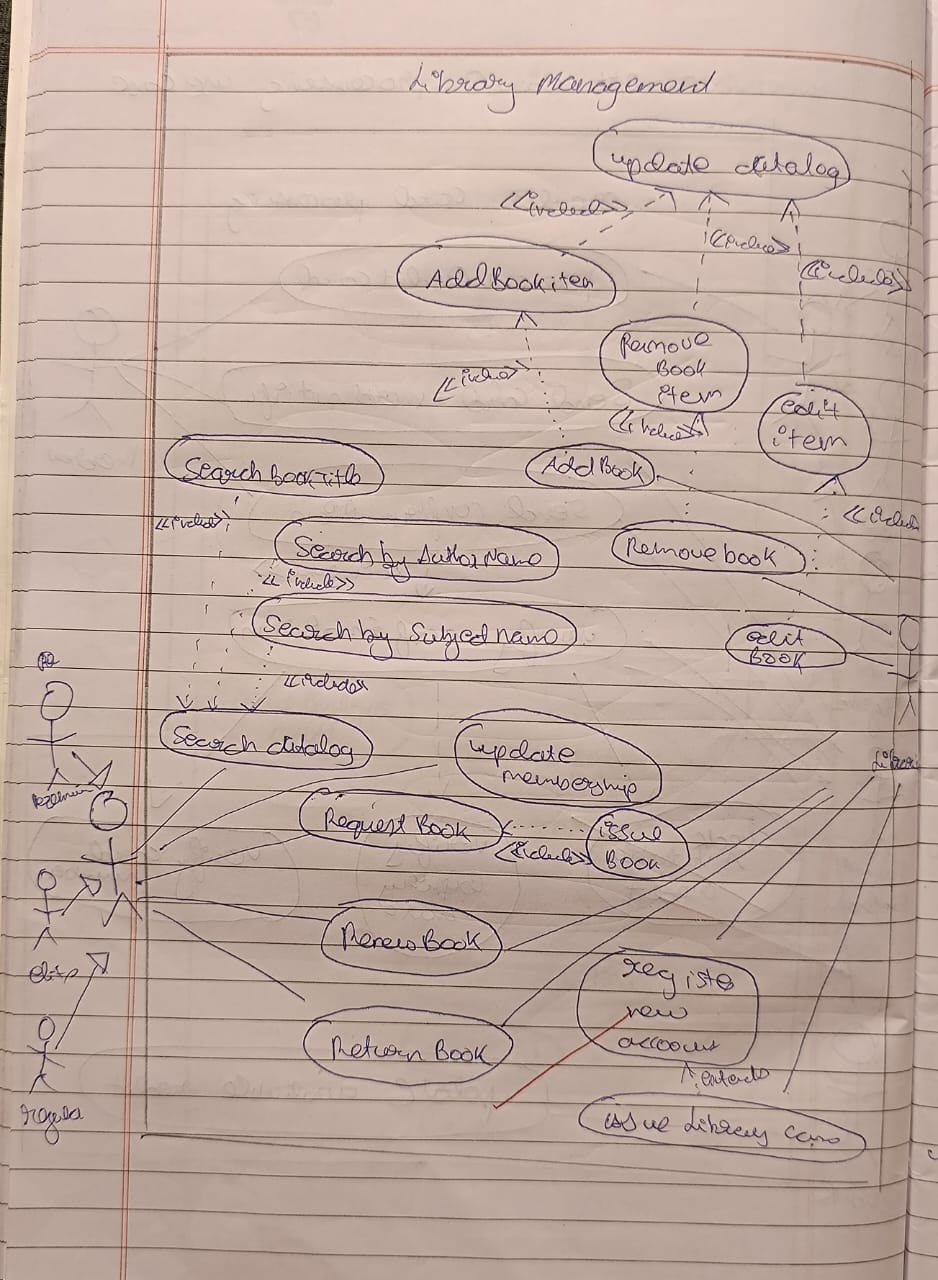 Library Management
update catalog
<<include>>
<<include>>
<<include>>
Add Book item
Remove
Book
item
<<include>>
edit
item
<<include>>
Search Book Title
Add Book
<<include>>
<<include>>
Search by Author Name
Remove book
<<include>>
Search by Subject name
edit
Book
<<include>>
Search catalog
update
membership
Request Book
issue
Book
<<include>>
Renew Book
register
new
account
Return Book
extends
issue Library